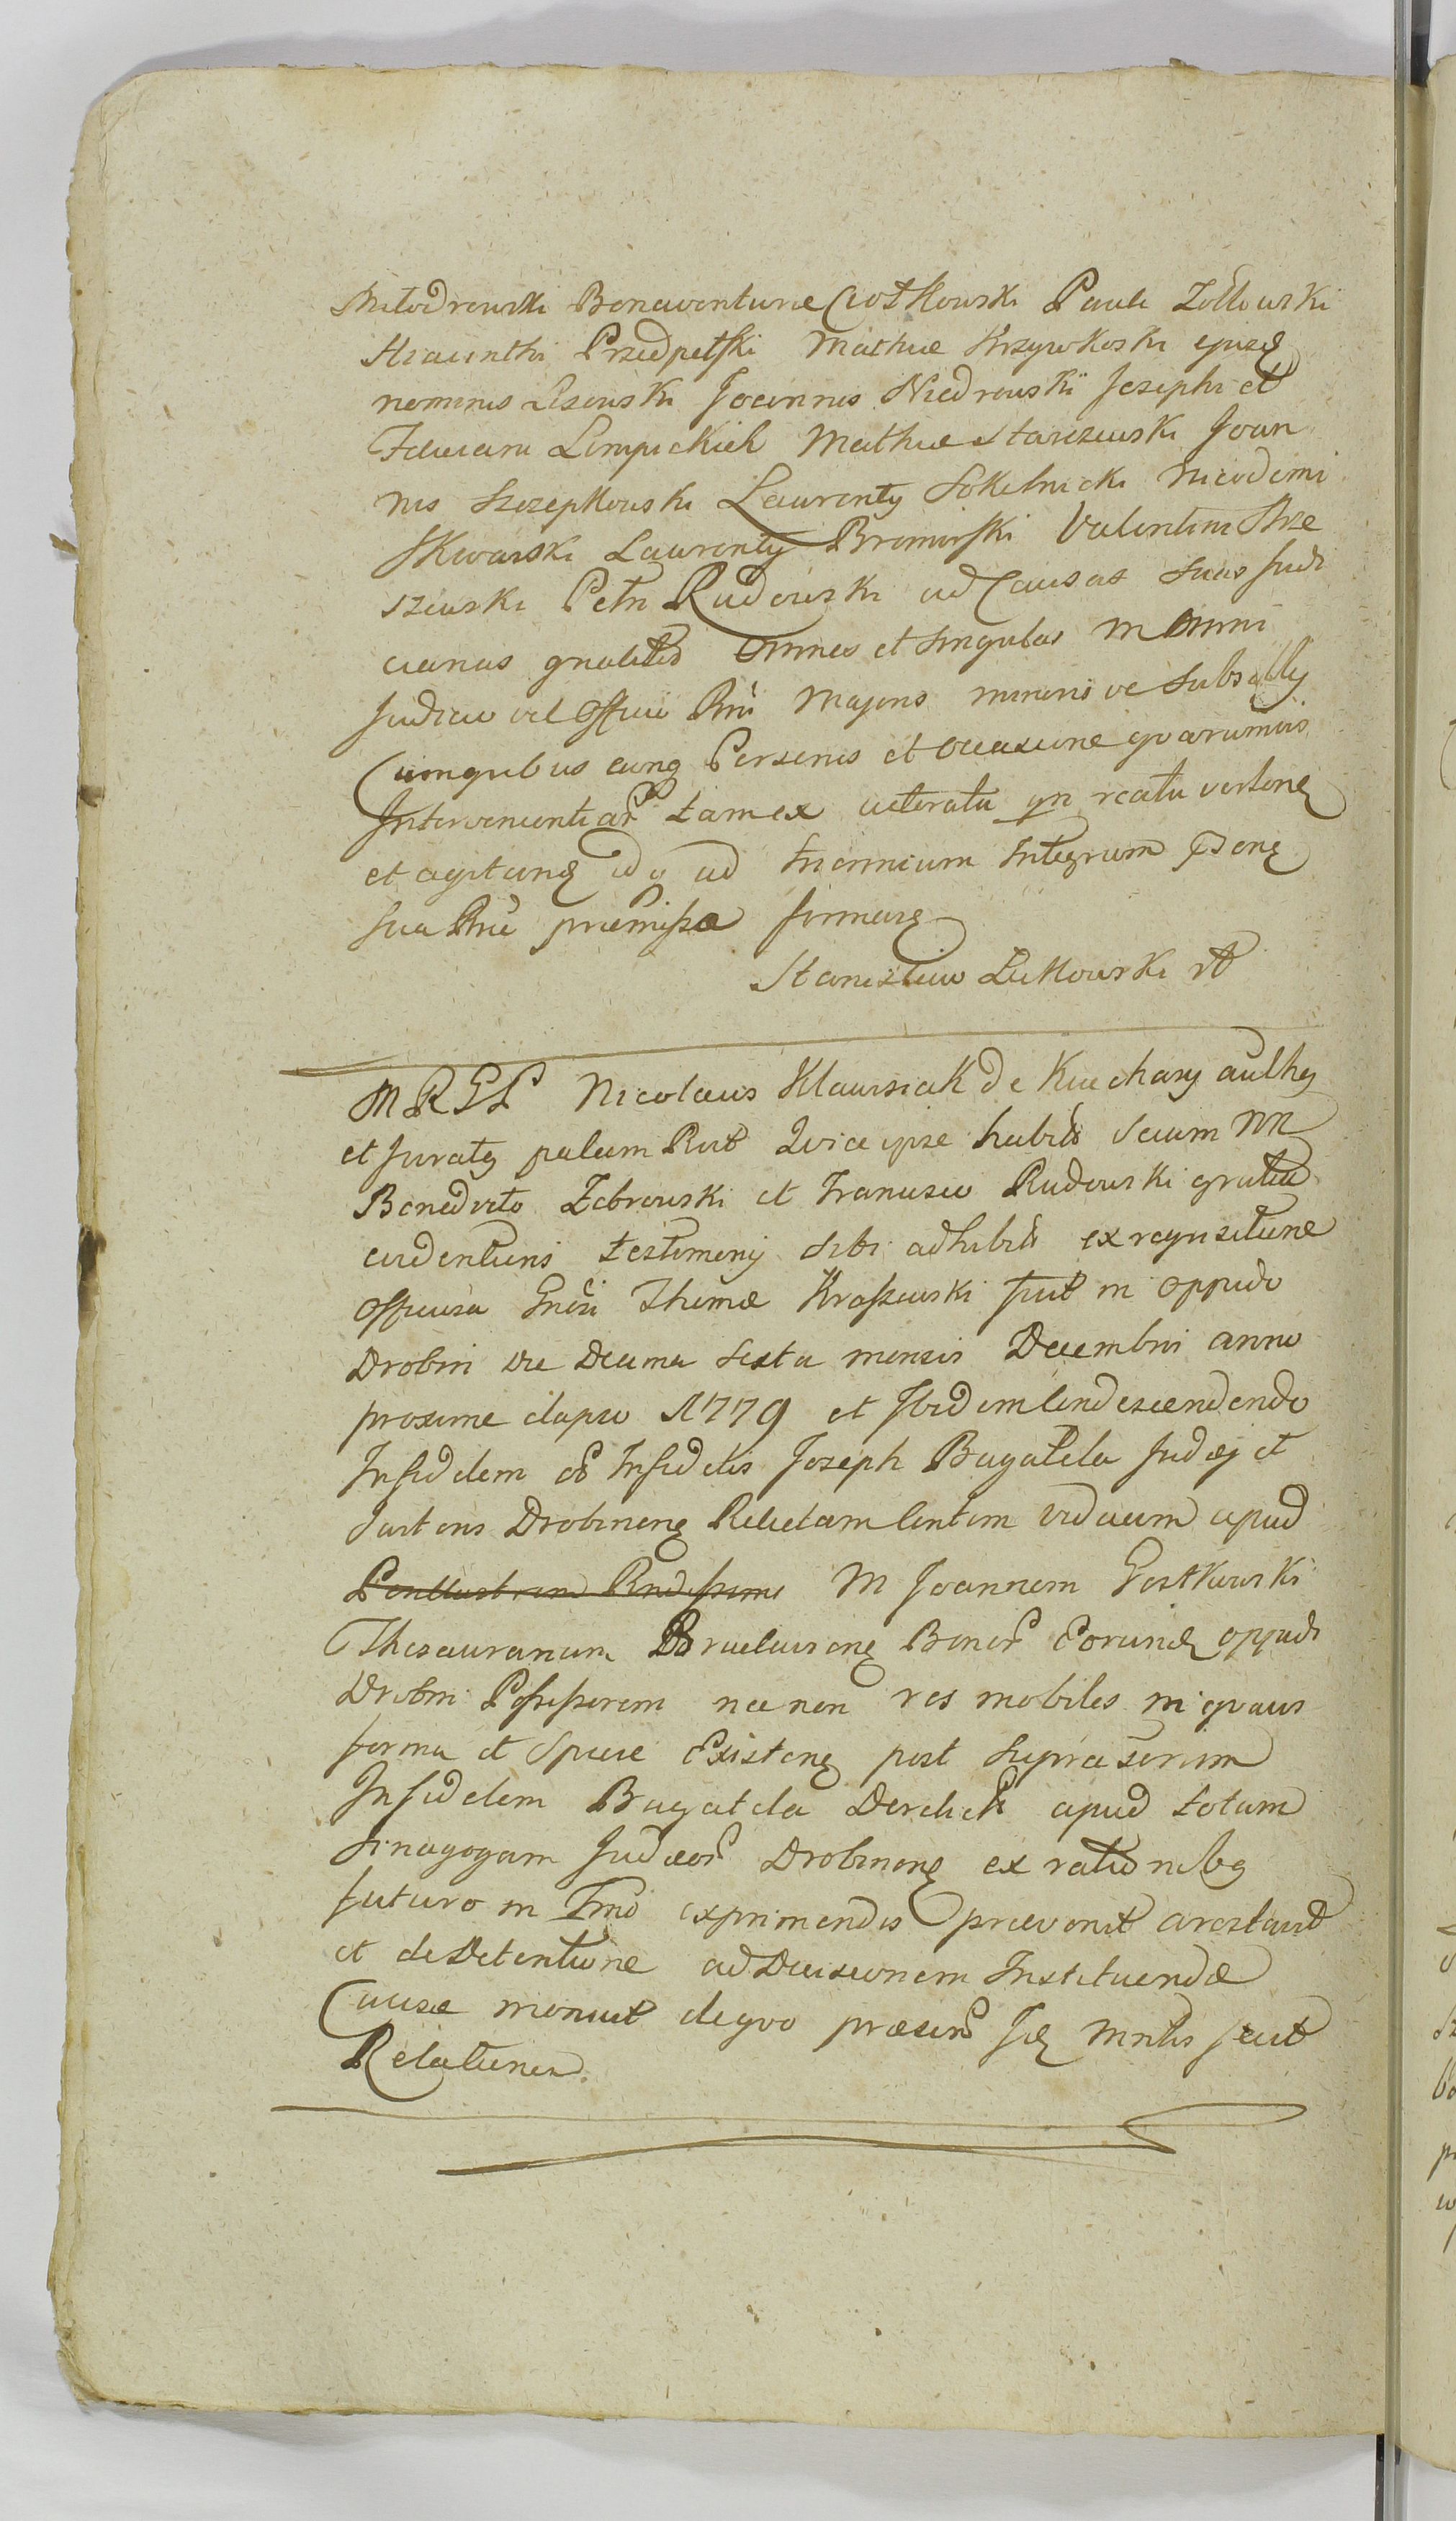 Milodrowski Bonaventurae Ciotkowski Pauli Zołtowski
Hiacinthi Przedpełski Mathiae Krzywkoski ejusd
nominis Lisowski Joannis Niedrowski Josephi et
Floriani Lempickich Mathiae Starczewski Joan
nis Szczepkowski Laurenty Sokolnicki Nicodemi
Skwarski Laurenty Bromirski Valentini Strze
szewski Petri Rudowski ad Causas Suas Judi
ciarias gnaliter Omnes et Singulas in Omni
Judicio vel Officio Rni Majoris minoris ve Subsellÿ
Cumquibus cunq Personis et occasione quarumvis
Intervenientiar tam ex actoratu qn reatu vertens
et agitand idq ad triennium Integrum
sua Rne praemissa firmans
Stanisław Lutkowski
M R G P Nicolaus Klawisiak de Kuchary authcg
et Juratg palam Rvit Qvia ipse habitis Secum NN
Benedicto Zebrowski et Francisco Rudowski gratia
evidentioris testimonÿ Sibi adhibitis ex requisitione
Officiosa Gnosi Thomae Kraszewski fuit in oppido
Drobin die Decima Sexta mensis Decembris anno
proxime elapso 1779 et Ibidem Condescendendo
Infidelem Infidelis Joseph Bagatela Judaej et
Sartoris Drobinens Relictam Contem viduam apud
M Joannem Gostkowski
Thesaurarium Braclaviens Bonor Eorund oppidi
Drobin Possessorem nec non res mobiles in qvavis
forma et Specie Existens post Supra scriptum
Infidelem Bagatela Derelictis apud totam
Sinagogam Judaeor Drobinens ex rationibg
futuro in Tmno exprimendis praevenit arestavit
et de Detentione ad Decisionem Instituendae
Causae monuit de qvo praesens Id Mntlis fecit
Relationem.